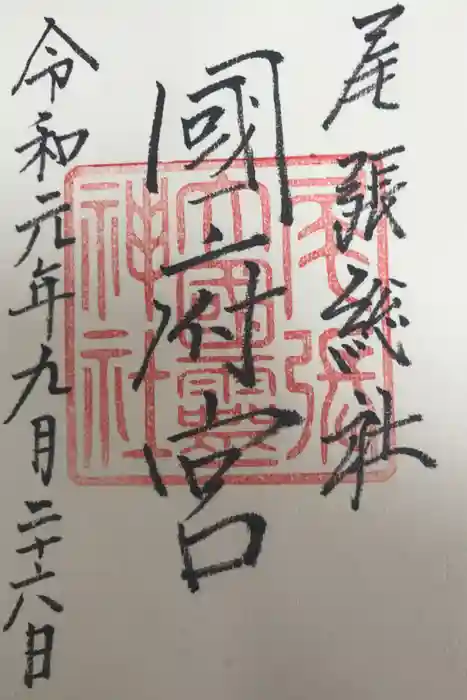 尾張総社
國府宮
令和元年九月二十六日
尾張
大國靈
神社